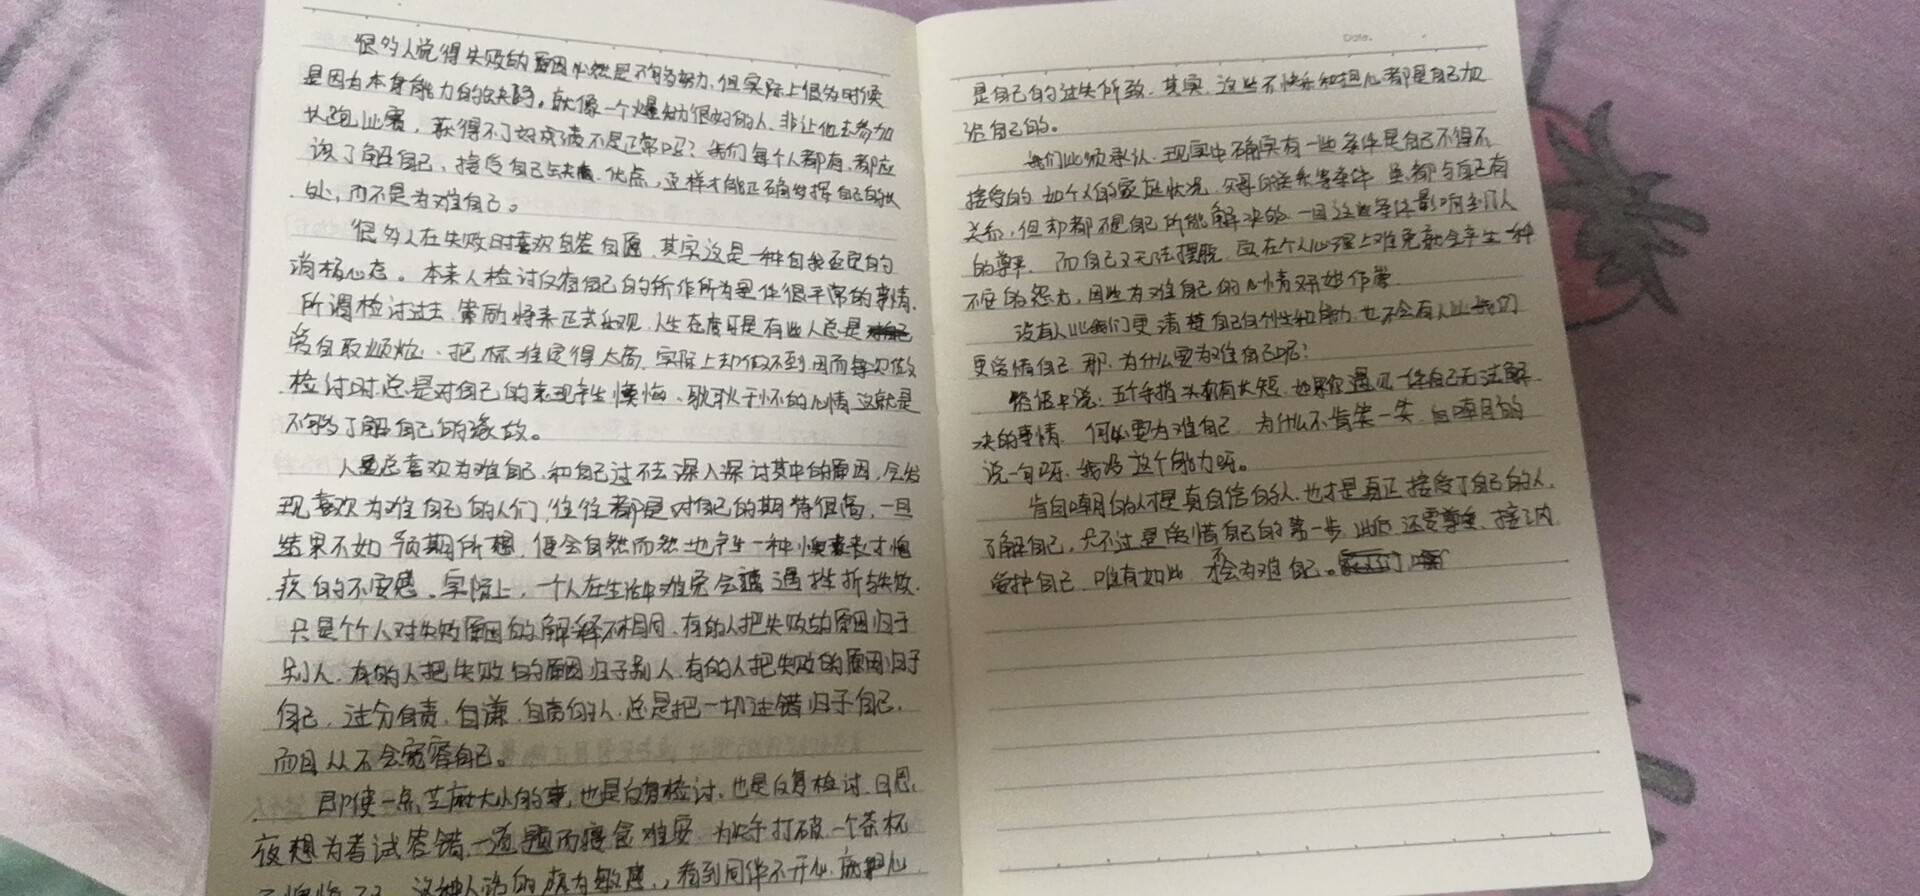 很多人觉得失败的原因必然是不够努力,但实际上很多时候
是因为本身能力的缺陷。就像一个爆发力很好的人、非让他去参加
长跑比赛,获得不了好成绩不是正常吗?我们每个人都有、都应
该了解自己、接受自己缺点、优点,这样才能正确发挥自己的长
处,而不是为难自己。
很多人在失败时喜欢自怨自艾,其实这是一种自我否定的
消极心态。本来人检讨反省自己的所作所为是件很平常的事情,
所谓检讨过去、策励将来正去观、人生态度可是有些人总是
爱自取烦恼、把标准定得太高,实际上却做不到,因而每次做
检讨时总是对自己的表现产生懊悔、耿耿于怀的心情这就是
不够了解自己的缘故。
人总喜欢为难自己、和自己过不去深入探讨其中的原因,会发
现喜欢为难自己的人们,往往都是对自己的期待很高,一旦
结果不如预期所想,便会自然而然地产生一种懊丧才恼
疚的不安感。实际上,一个人在生活中难免会遭遇挫折与失败,
只是个人对失败原因的解释不相同、有的人把失败的原因归于
别人、有的人把失败的原因归于别人、有的人把失败的原因归于
自己,过分自责、自谦、自卑的人、总是把一切过错归于自己,
而且从不会宽容自己。
即使一点芝麻大小的事,也是反复检讨、也是反复检讨、日思
夜想为考试答错一道题而寝食难安 为失手打破一个茶杯
这种人活的成为敏感,看到同伴不开心
Date.
是自己的过失所致、其实、这些不快乐和担心都是自己加
给自己的。
我们必须承认、现实中确实有一些条件是自己不得不
接受的 如个人的家庭状况、父母的关系等条件 虽都与自己有
关系,但却都不是自己所能解决的 一旦这些条件影响到个人
的尊严、而自己又无法摆脱,在个人心理上难免就会产生一种
不安的怨尤,因此为难自己的心情开始作祟
没有人比我们更清楚自己的个性和能力 也不会有人比我们
更爱惜自己 那、为什么要为难自己呢?
俗语中说:五个手指头都有长短、如果你遇见一件自己无法解
决的事情、何必要为难自己、为什么不肯笑一笑、自嘲的
说一句呀、我没这个能力呀。
肯自嘲的人才是真自信的人、也才是真正接受了自己的人,
了解自己,只不过是爱惜自己的第一步、此后还要尊重、接纳
爱护自己、唯有如此 不会为难自己。